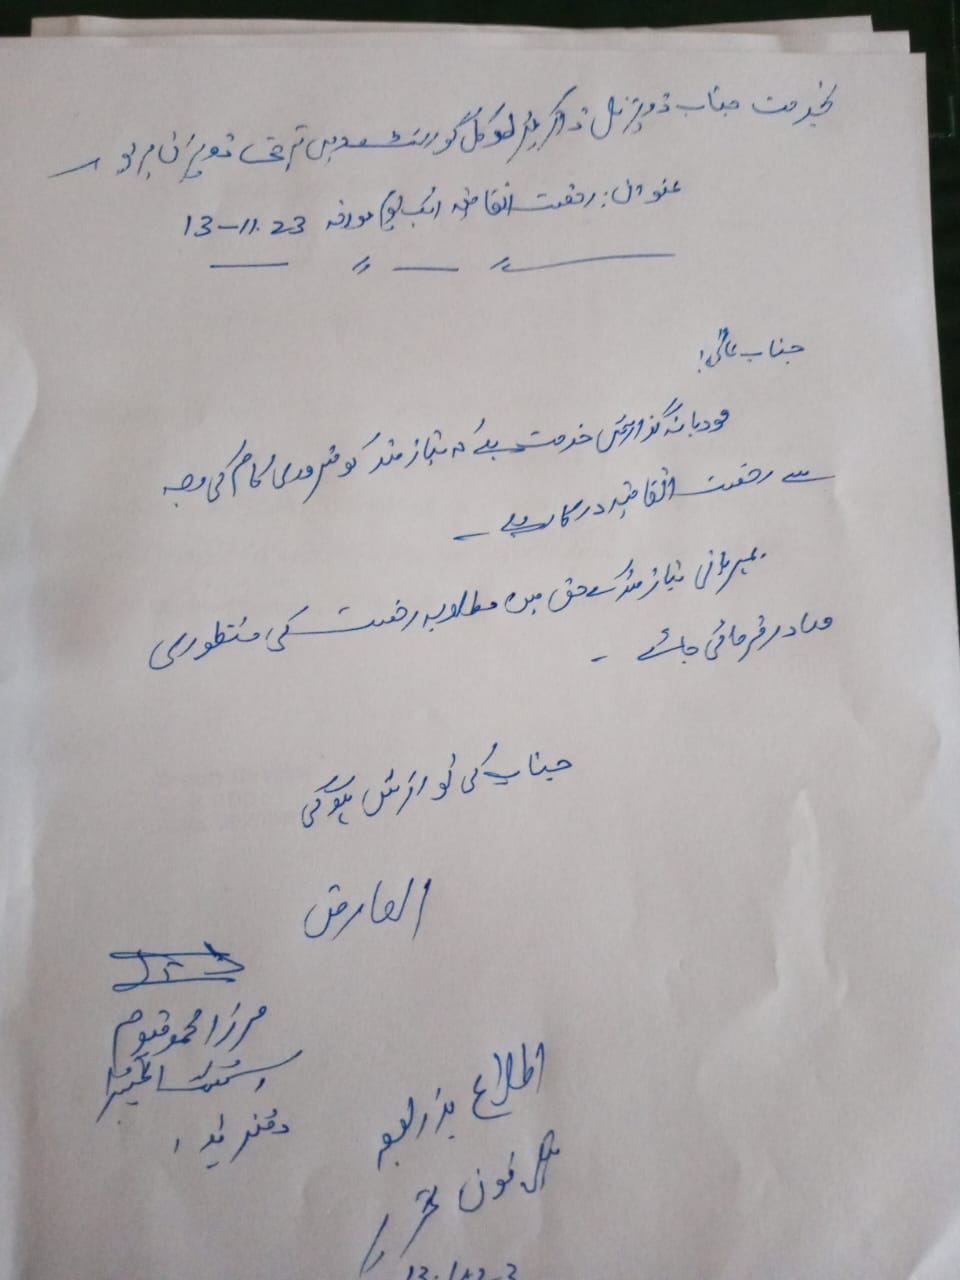 بخدمت جناب ڈویژنل ڈائریکٹر لوکل گورنمنٹ و دیہی ترقی ڈویژن
عنوان: رخصت اتفاقیہ ایک یوم مورخہ 13-11.23
جناب عالی!
مودبانہ گذارش خدمت ہے کہ نیازمند کو ضروری کام کی وجہ
سے رخصت اتفاقیہ درکار ہے ۔
بمہربانی نیازمند کے حق میں مطلوبہ رخصت کی منظوری
صادر فرمائی جائے ۔
جناب کی نوازش ہوگی
العارض
مرزا محمد قیوم
اسسٹنٹ انجینئر
دفتر ہذا
اطلاع بذریعہ
ٹیلی فون